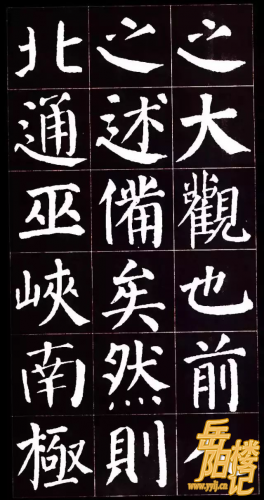 之大觀也前人
之述備矣然則
北通巫峽南極
岳阳楼记
www.yylj.cn